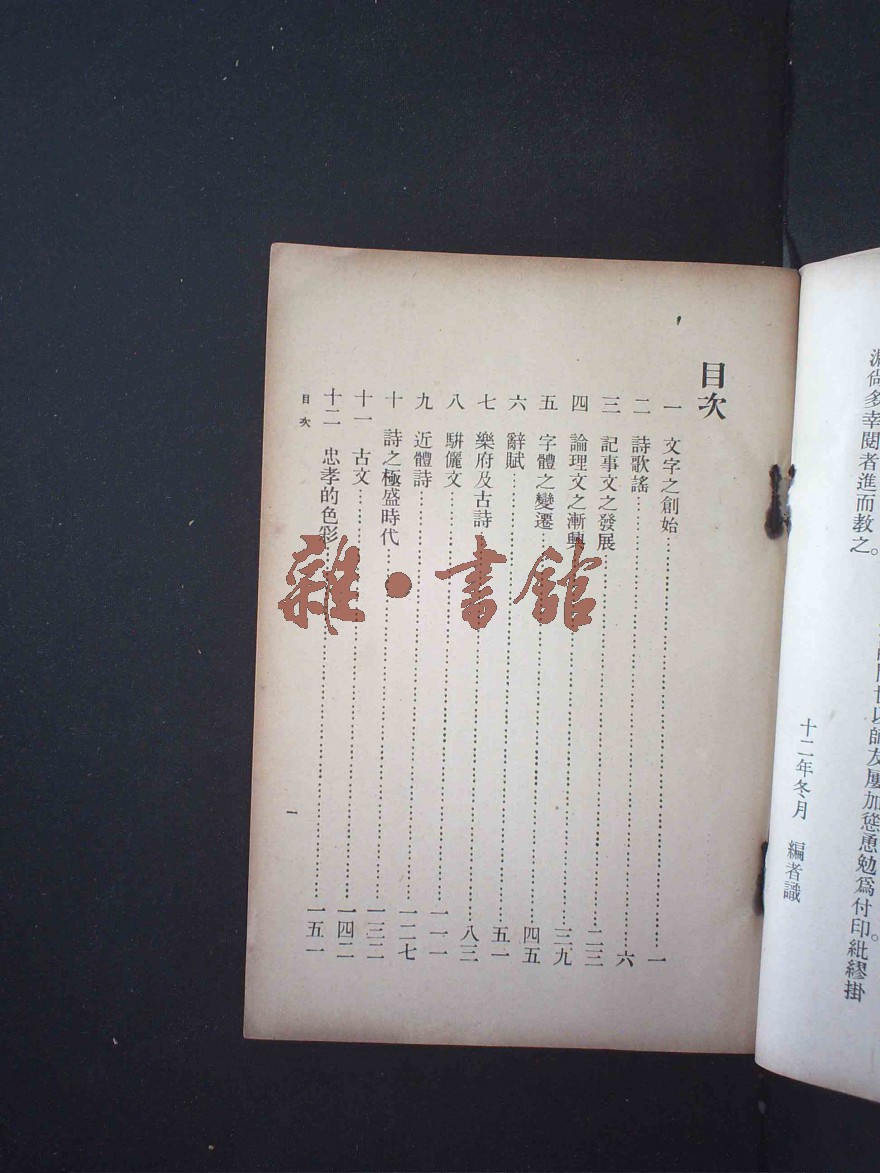 世以師友屢加慫恿勉爲付印。紕繆掛
漏尙多幸閱者進而教之。
十二年冬月　編者識
目次
一　文字之創始……一
二　詩歌謠……六
三　記事文之發展……二三
四　論理文之漸興……三九
五　字體之變遷……四五
六　辭賦……五一
七　樂府及古詩……八三
八　駢儷文……一一一
九　近體詩……一二七
十　詩之極盛時代……一三二
十一　古文……一四二
十二　忠孝的色彩……一五一
目次
一
雜·書館